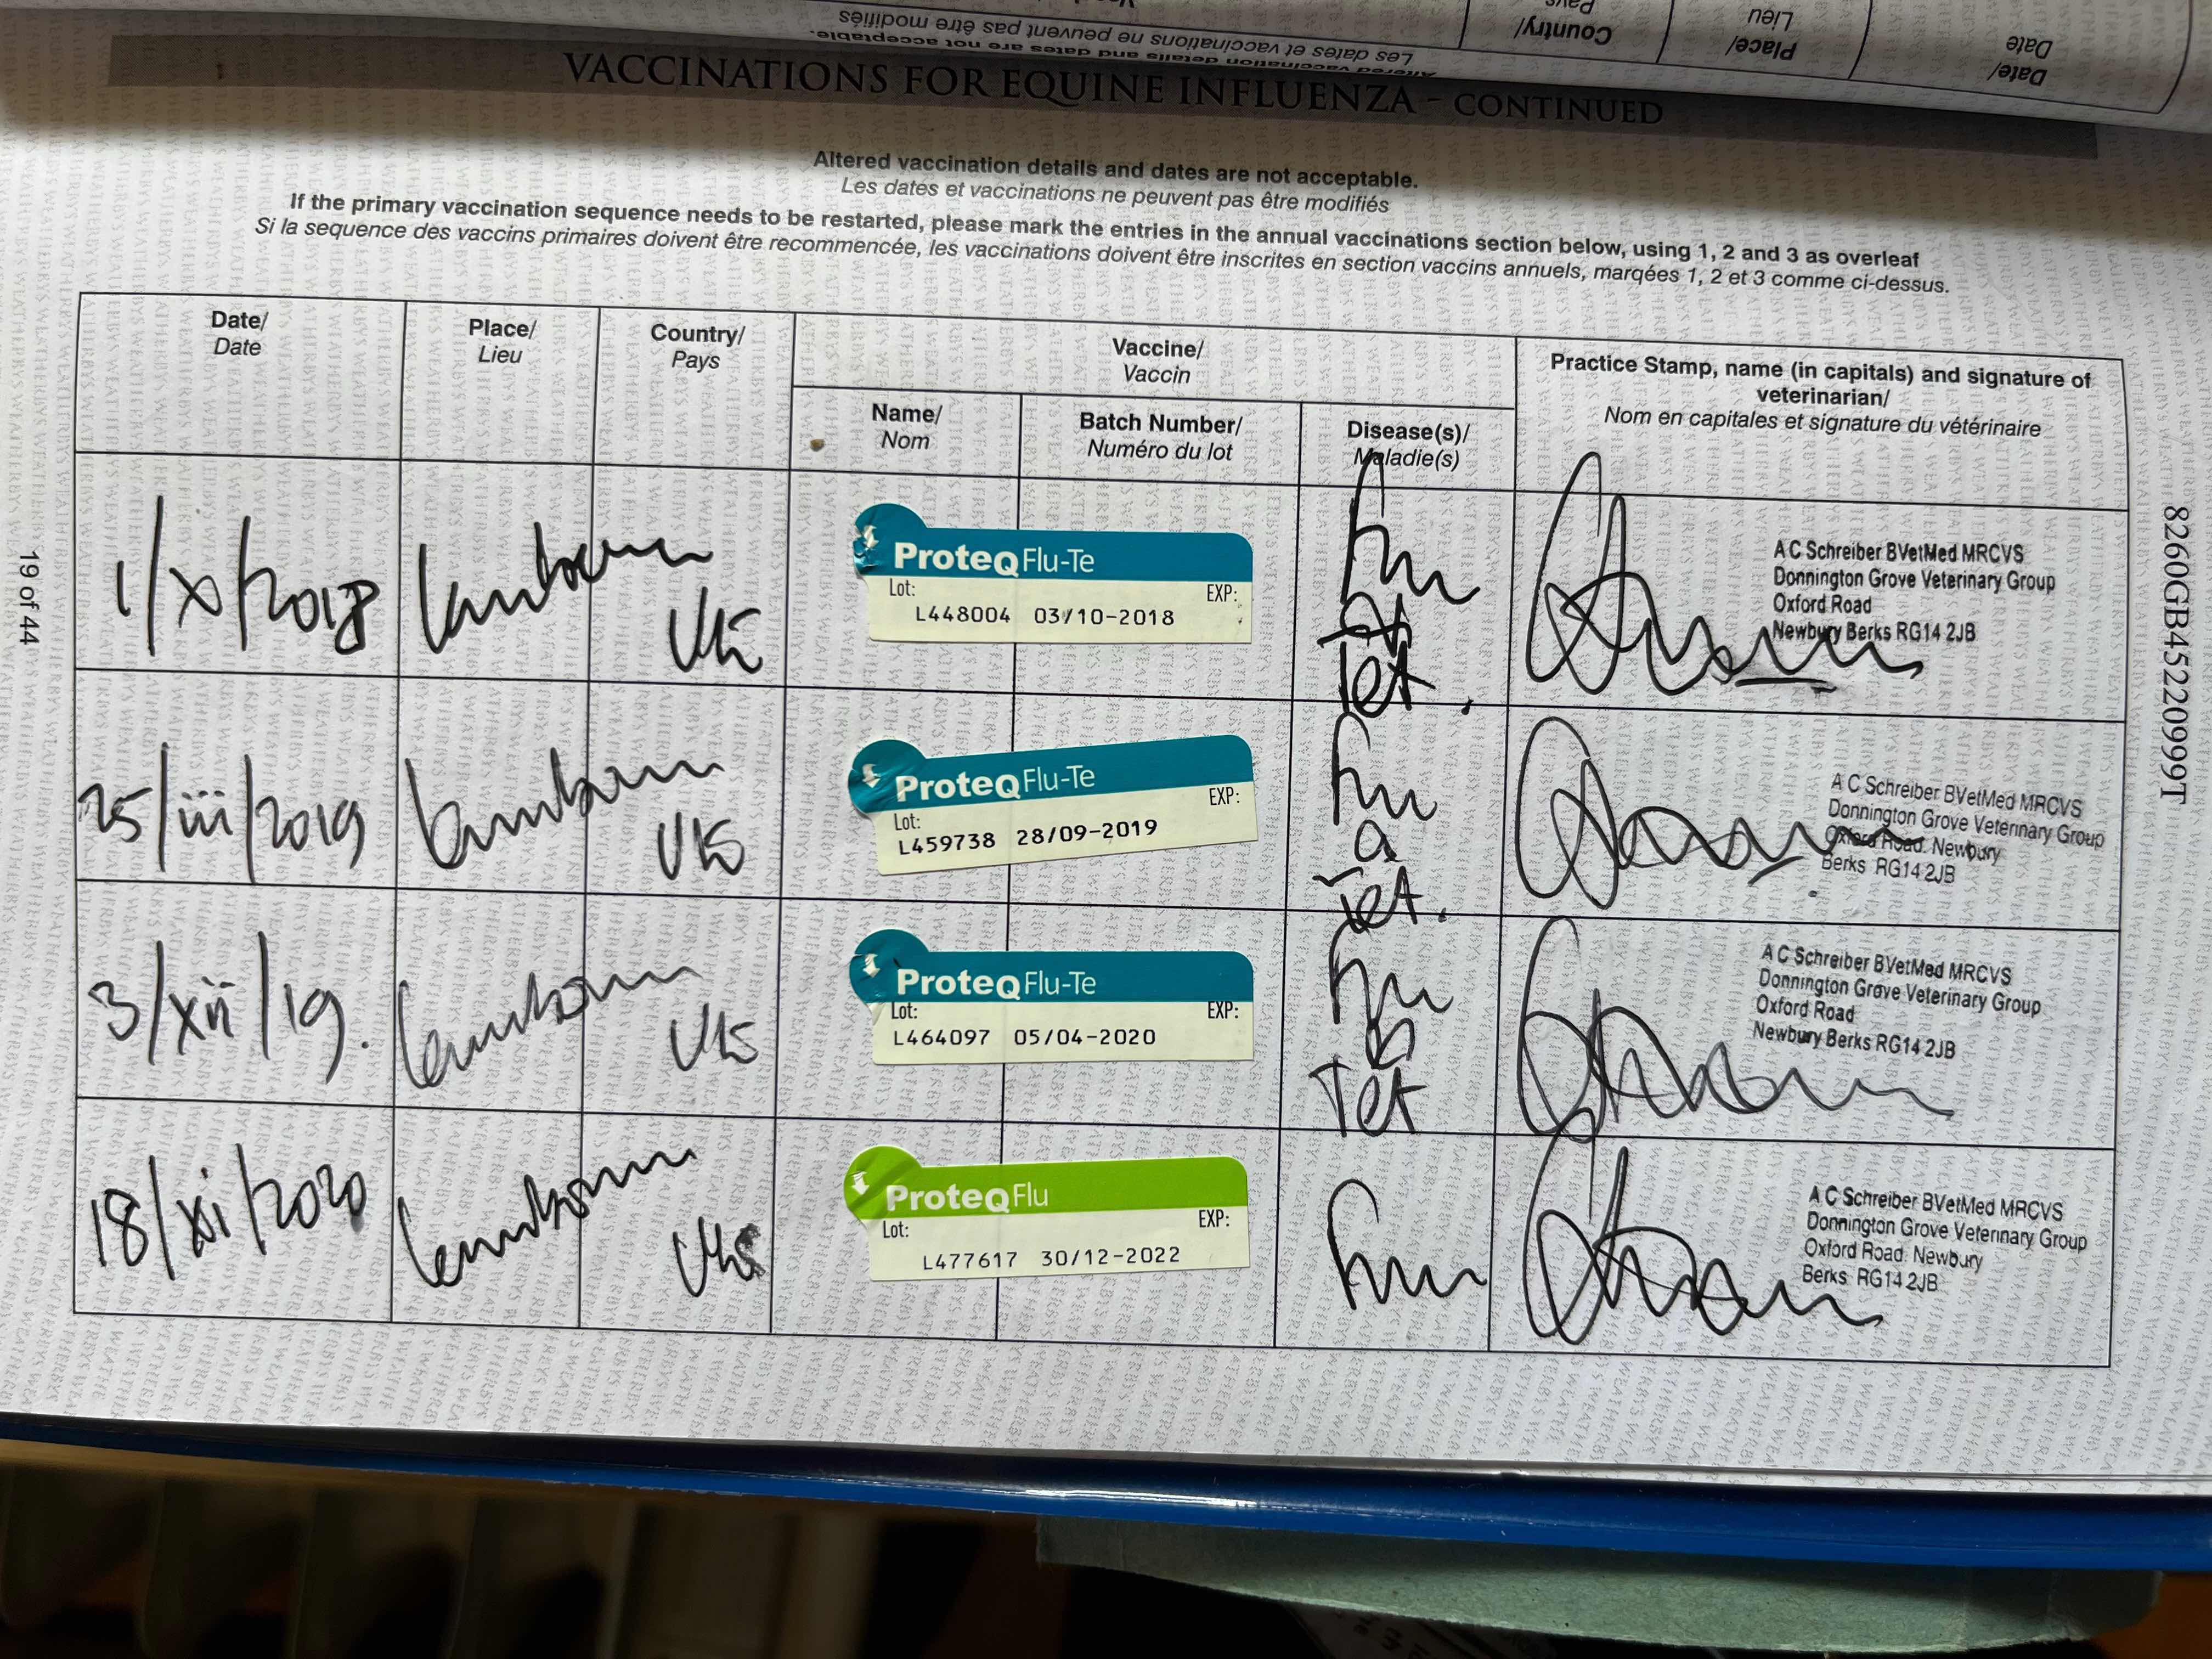 Date/
Date
Place/
Lieu
Country/
Pays
Les dates et vaccinations ne peuvent pas être modifiés
Altered vaccination details and dates are not acceptable.
VACCINATIONS FOR EQUINE INFLUENZA - CONTINUED
Altered vaccination details and dates are not acceptable.
Les dates et vaccinations ne peuvent pas être modifiés
If the primary vaccination sequence needs to be restarted, please mark the entries in the annual vaccinations section below, using 1, 2 and 3 as overleaf
Si la sequence des vaccins primaires doivent être recommencée, les vaccinations doivent être inscrites en section vaccins annuels, marqées 1, 2 et 3 comme ci-dessus.
Date/
Date
Place/
Lieu
Country/
Pays
Vaccine/
Vaccin
Name/
Nom
Batch Number/
Numéro du lot
Disease(s)/
Maladie(s)
Practice Stamp, name (in capitals) and signature of
veterinarian/
Nom en capitales et signature du vétérinaire
1/x/2018
Lambourn
UK
ProteqFlu-Te
Lot: EXP:
L448004 03/10-2018
Flu
&
Tet.
A C Schreiber BVetMed MRCVS
Donnington Grove Veterinary Group
Oxford Road
Newbury Berks RG14 2JB
25/iii/2019
Lambourn
UK
ProteqFlu-Te
EXP:
Lot:
L459738 28/09-2019
Flu
Tet.
A C Schreiber BVetMed MRCVS
Donnington Grove Veterinary Group
Oxford Road. Newbury
Berks RG14 2JB
3/xii/19.
Lambourn
UK
ProteqFlu-Te
Lot: EXP:
L464097 05/04-2020
Flu
Tet
A C Schreiber BVetMed MRCVS
Donnington Grove Veterinary Group
Oxford Road
Newbury Berks RG14 2JB
18/xi/2020
Lambourn
UK
ProteqFlu
Lot: EXP:
L477617 30/12-2022
Flu
A C Schreiber BVetMed MRCVS
Donnington Grove Veterinary Group
Oxford Road. Newbury
Berks RG14 2JB
19 of 44
8260GB45220999T